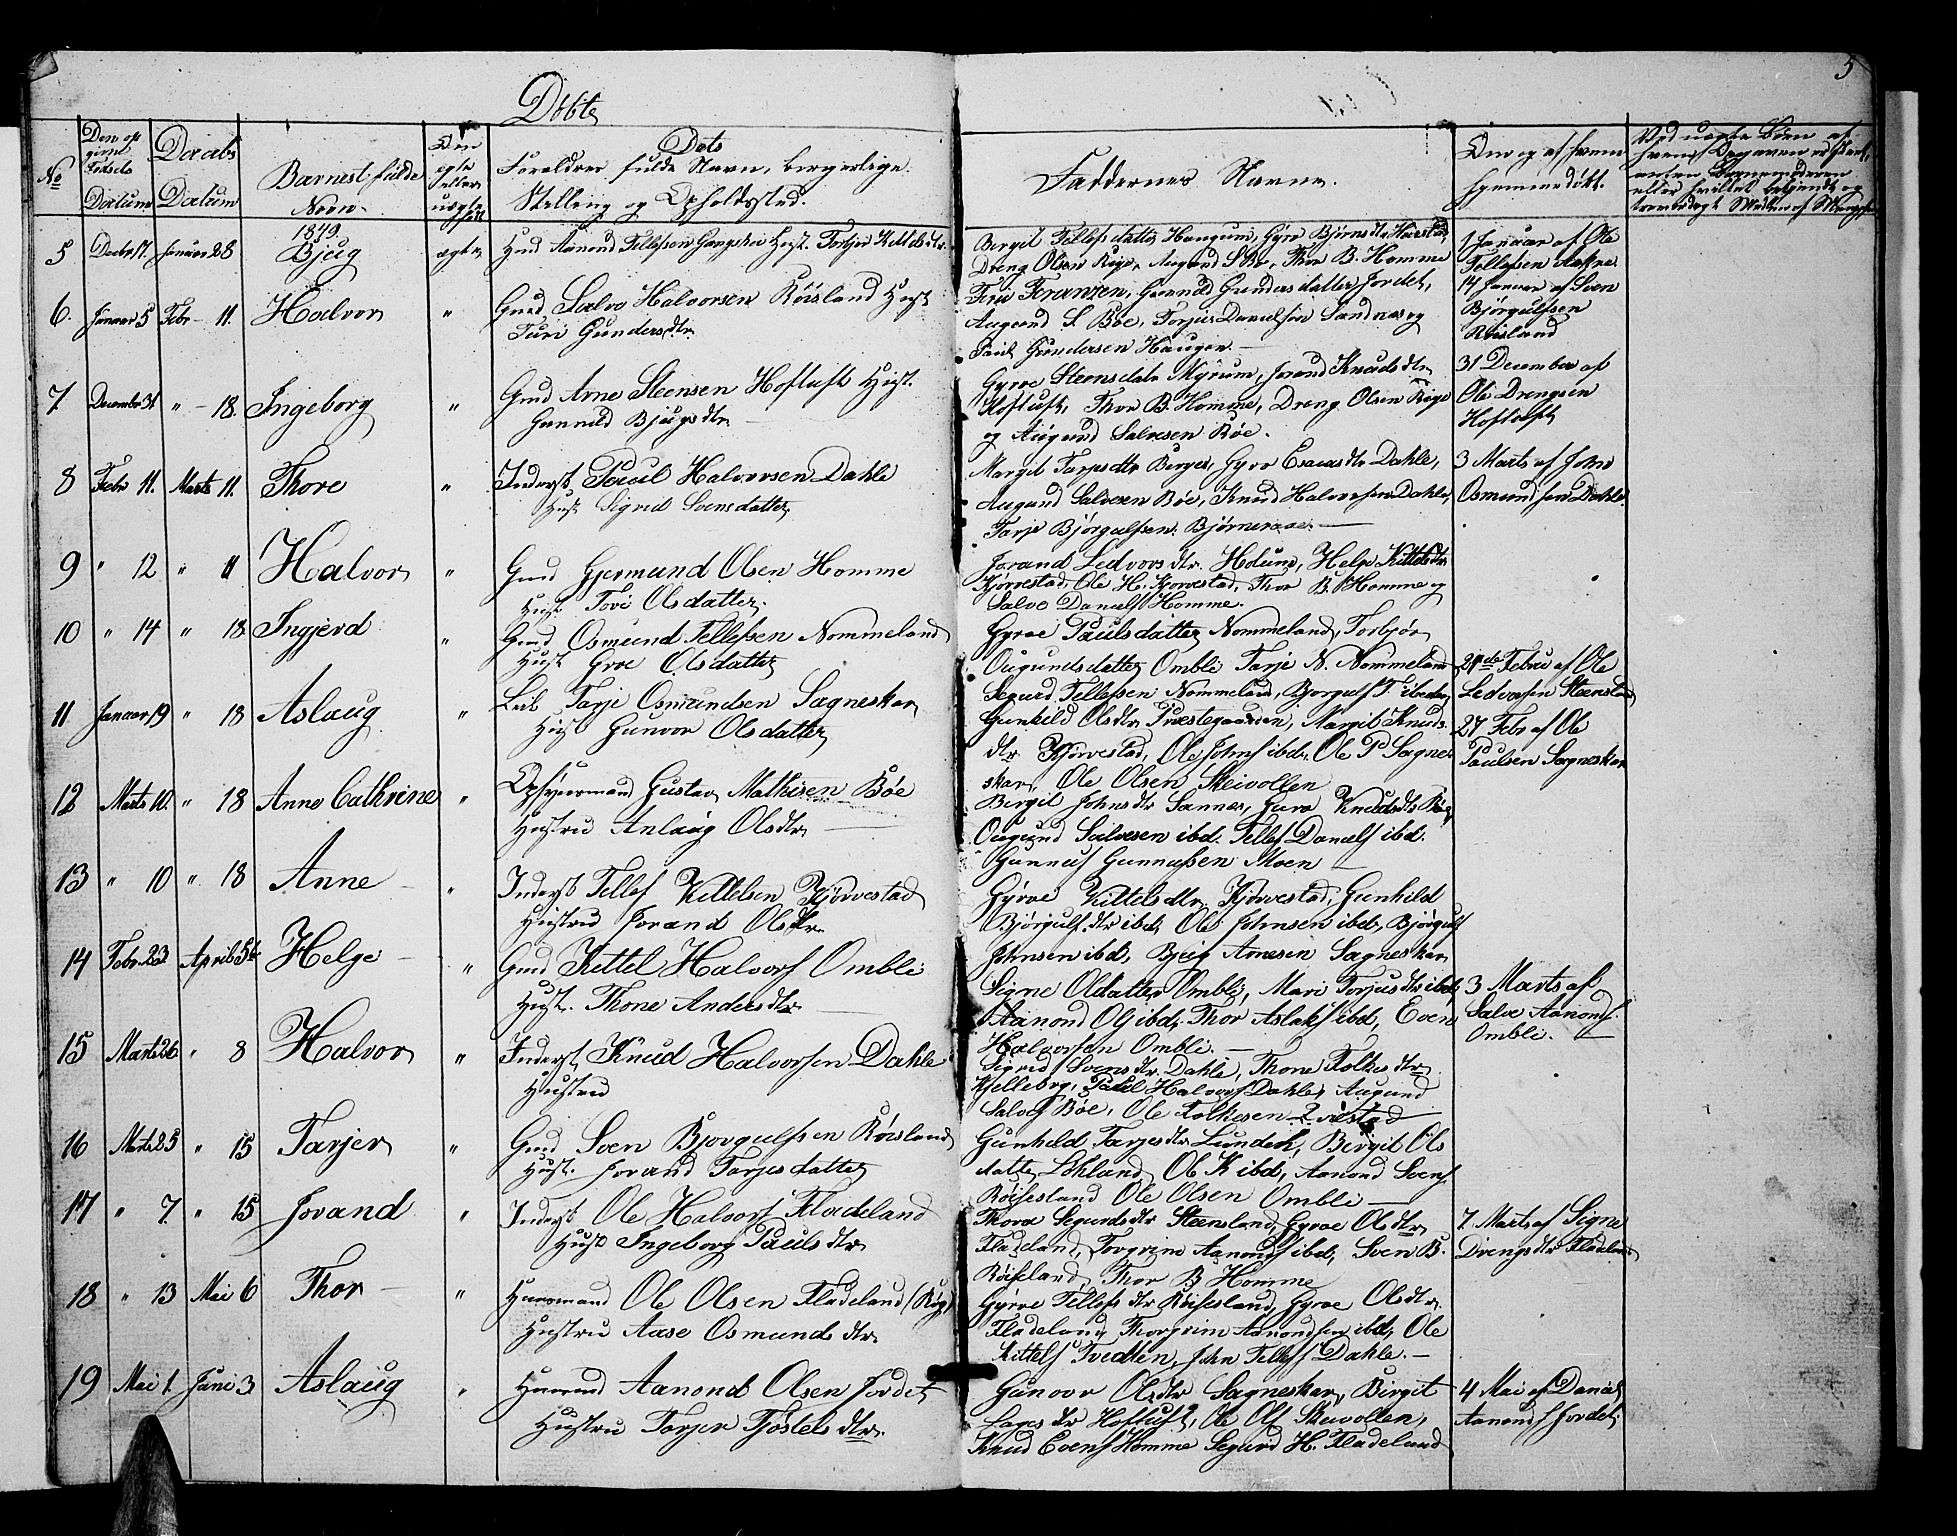 5
Döbte
No
Den op
givne
Födsels
Datum
Daabs
Datum
Barnets fulde
Navn
Om
ægte
eller
uægte
födt
Dets
Forældres fulde Navn, borgerlige
Stilling og Opholdssted.
Faddernes Navne.
Om og af hvem
hjemmedöbt.
Ved uægte Börn af
1849
5 Decbr 17. Januar 28 Bjug ægte Gmd Aanond Tellefsen Haugskei Hust. Torbjör Kittelsdtr
Birgit Tellefsdatter Haugum, Gyro Björnsdtr Harstad
Dreng Olsen Rige, Augund S. Bö, Thor B. Homme
1 Januar af Ole
Tellefsen
6. Januar 5 Febr 11. Halvor " Gmd Salvo Halvorsen Röisland Hust
Turi Gundersdtr.
Frantzen, Gunnild Gundersdatter Jordet,
Augund S. Böe, Torjus Danielsen Sandnes og
Paul Gundersen Haugen.
14 Januar af Sven
Björgulfsen
Röisland
7 December 31 " 18. Ingeborg " Gmd Arne Steensen Hoftuft Hust.
Gunnild Bjugsdtr
Gyroe Steensdatr Myrum, Jorand Knudsdtr
Hoftuft, Thor B. Homme, Dreng Olsen Rige
og Augund Salvesen Böe.
31 December af
Ole Drengsen
Hoftuft
8 Febr 11. Marts 11. Thore " Inderst Paul Halvorsen Dahle
Hust Sigrid Svensdatter
Margit Tarjesdtr Berges, Gyro Esaiasdtr Dahle,
Augund Salvesen Böe, Knud Halvorsen Dahle,
Tarje Björgulfsen Björneraae.
3 Marts af John
Osmundsen Dahle.
9 " 12 " 11 Halvor " Gmd Gjermund Olsen Homme
Hust Tove Olsdatter.
Jorand Ledvorsdtr. Holum, Helge Kittelsdtr
Kjörvestad, Ole H. Kjorvestad, Thor B. Homme og
Salvo Danielsf Homme.
10 " 14 " 18 Ingjerd " Gmd Osmund Tellefsen Nommeland
Hust Groe Olsdatter
Gyroe Paulsdatter Nommeland, Torbjör
Ougundsdatter Ombli Tarje N. Nommeland
Segurd Tellefsen Nommeland, Bjorgulf T. ibidem
21de Febru af Ole
Ledvorsen Steensland
11 Januar 19 " 18 Aslaug " Leil Tarje Osmundsen Sagneskar
Hust Gunvor Olsdatter
Gunhild Olsdtr Præstegaarden, Margit Knuds
dtr Kjörvestad, Ole Johnsf ibd. Ole P. Sagne
skar, Ole Olsen Skeivollen
27 Febr af Ole
Paulsen Sagneskar
12 Marts 10. " 18 Anne Cathrine " Opsynsmand Gustav Mathisen Böe
Hustru Anlaug Olsdtr
Birgit Johnsdtr Sannes, Guro Knudsdtr Böe,
Ougund Salvesen ibd. Tellef Danielsf ibd.
Gunnuf Gunnufsen Moen
13 " 10 " 18 Anne " Inderst Tellef Kittelsen Kjörvestad
Hustru Jorand Olsdtr.
Gyroe Kittelsdtr Kjörvestad, Gunhild
Björgulf.dtr ibd, Ole Johnsen ibd, Björguf
Johnsen ibd, Bjug Arnesen Sagneskar
14 Febr. 23 April 5te Helge " Gmd Kettel Halvorsf Ombli
Hust. Thone Andersdtr
Signe Oldatter Ombli, Mari Torjusdtr ibd,
Aanond Olf ibd, Thor Aslaksf ibd, Even
Halvorsen Ombli.
3 Marts af
Salve Aanonsf
Ombli.
15 Marts 26 " 8 Halvor " Inderst Knud Halvorsen Dahle
Hustru
Sigrid Svensdtr. Dahle, Thone Folkesdtr
Kjelleberg, Paul Halvorsf Dahle, Augund
Salvesf Böe, Ole Folkesen
16 Marts 25 " 15 Tarjer " Gmd Sven Bjorgulfsen Röisland
Hust. Jorand Tarjesdatter
Gunhild Tarjesdtr Lunden, Birgit Ols
datter Lökland, Ole K ibd, Aanond Svensf
Röisesland Ole Olsen Ombli
17 " 7. " 15 Jorand " Inderst Ole Halvorsf Fladeland
Hust Ingeborg Paulsdtr
Thora Segurdsdtr Steensland Gyroe Olsdtr
Fladeland, Torgrim Aanondsf ibd, Sven B.
Röiseland, Thor B. Homme
7. Marts af Signe
Drengsdtr Fladeland
18 " 13 Mai 6 Thor " Huusmand Ole Olsen Fladeland (Rige)
Hustru Aase Osmundsdtr
Gyroe Tellefsdtr Röisesland, Gyroe Olsdtr.
Fladeland, Thorgrim Aanondsen ibd, Ole
Kittelsf Tvedten, John Tellefsf Dahle.
19 Mai 1. Juni 3 Aslaug " Huusmd Aanond Olsen Jordet
Hustru Tarjer Tjöstelsdtr.
Gunvor Olsdtr Sagneskar, Birgit
Aagesdtr Hoftuft, Ole Olf Skeivollen,
Knud Evensf Homme Segurd H. Fladeland
4 Mai af Daniel
Aanondsf Jordet.